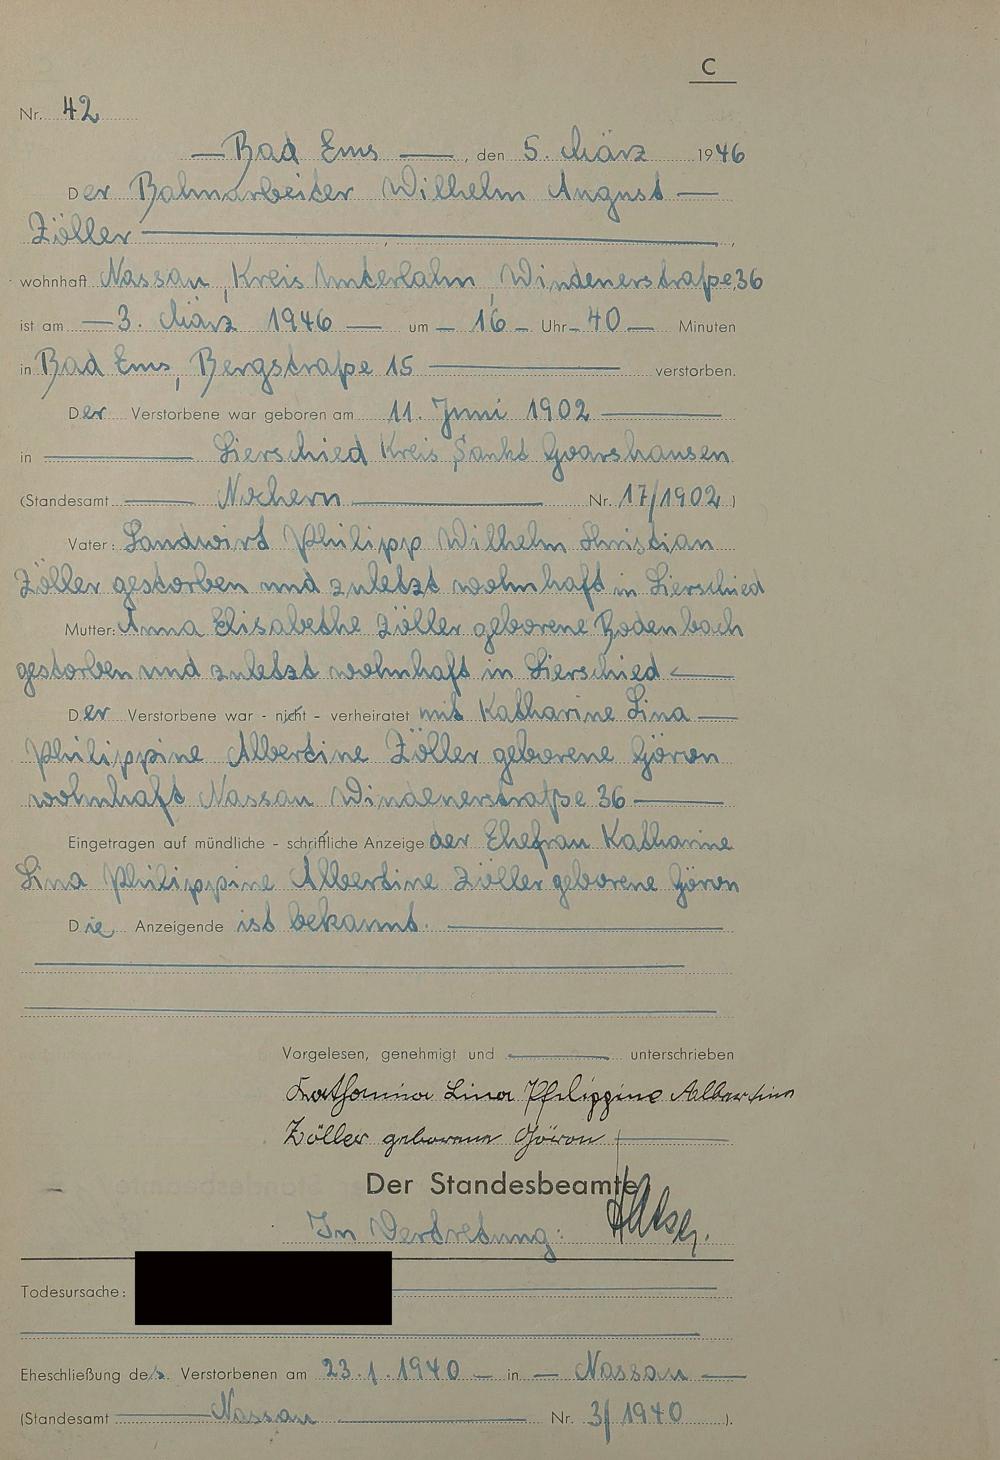 C
Nr. 42
— Bad Ems —, den 5. März 1946
Der Bahnarbeiter Wilhelm August —
Zöller —,
wohnhaft Nassau, Kreis Unterlahn, Windenerstraße 36
ist am — 3. März 1946 — um — 16 — Uhr — 40 — Minuten
in Bad Ems, Bergstraße 15 — verstorben.
Der Verstorbene war geboren am 11. Juni 1902 —
in — Lierschied Kreis Sankt Goarshausen
(Standesamt — Nochern — Nr. 17/1902)
Vater: Landwirt Philipp Wilhelm Christian
Zöller gestorben und zuletzt wohnhaft in Lierschied
Mutter: Anna Elisabethe Zöller geborene Rodenbach
gestorben und zuletzt wohnhaft in Lierschied —
Der Verstorbene war - nicht - verheiratet mit Katharine Lina —
Philippine Albertine Zöller geborene Göron
wohnhaft Nassau Windenerstraße 36 —
Eingetragen auf mündliche - schriftliche Anzeige der Ehefrau Katharine
Lina Philippine Albertine Zöller geborene Göron
Die Anzeigende ist bekannt. —
Vorgelesen, genehmigt und — unterschrieben
Katharina Lina Philippine Albertine
Zöller geborene Göron —
Der Standesbeamte
In Vertretung:
Todesursache:
Eheschließung des Verstorbenen am 23.1.1940 — in — Nassau —
(Standesamt — Nassau — Nr. 3/1940).